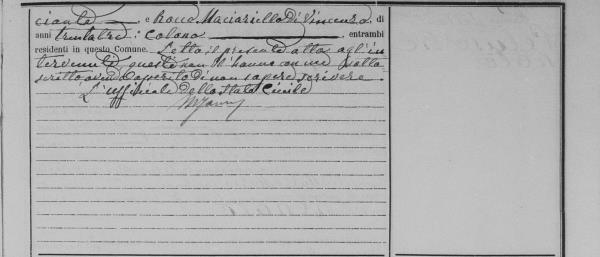 ciante e Rocco Maciariello Di Vincenzo di
anni trentatre: Colono, entrambi
residenti in questo Comune. Letto il presente atto agli in
tervenuti questi non l'hanno con me sotto
scritto avendo asserito di non sapere scrivere.
L'uffiziale dello Stato Civile